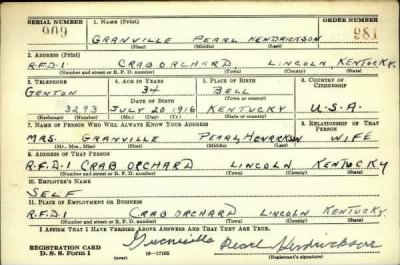 SERIAL NUMBER 1. NAME (Print) ORDER NUMBER
909 GRANVILLE PEARL HENDRICKSON 981
(First) (Middle) (Last)
2. ADDRESS (Print)
R.F.D.1 CRAB ORCHARD LINCOLN KENTUCKY.
(Number and street or R. F. D. number) (Town) (County) (State)
3. TELEPHONE 4. AGE IN YEARS 5. PLACE OF BIRTH 6. COUNTRY OF CITIZENSHIP
34 BELL
DATE OF BIRTH (Town or county)
3293 JULY 20 1916 KENTUCKY U.S.A.
(Exchange) (Number) (Mo.) (Day) (Yr.) (State or country)
7. NAME OF PERSON WHO WILL ALWAYS KNOW YOUR ADDRESS 8. RELATIONSHIP OF THAT PERSON
MRS. GRANVILLE PEARL HENRICKSON WIFE
(Mr., Mrs., Miss) (First) (Middle) (Last)
9. ADDRESS OF THAT PERSON
R.F.D.1 CRAB ORCHARD LINCOLN KENTUCKY
(Number and street or R. F. D. number) (Town) (County) (State)
10. EMPLOYER'S NAME
SELF
11. PLACE OF EMPLOYMENT OR BUSINESS
R.F.D.1 CRAB ORCHARD LINCOLN KENTUCKY.
(Number and street or R. F. D. number) (Town) (County) (State)
I AFFIRM THAT I HAVE VERIFIED ABOVE ANSWERS AND THAT THEY ARE TRUE.
REGISTRATION CARD
D. S. S. Form 1 16-17105 Pearl Hendrickson